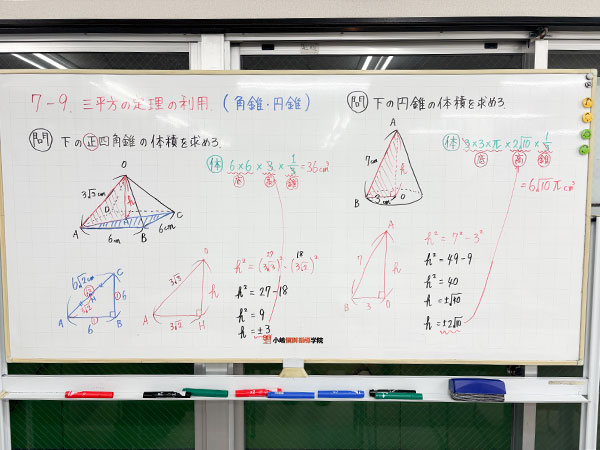 7-9. 三平方の定理の利用. (角錐・円錐)
問 下の正四角錐の体積を求めろ.
O
3√3cm
h
D
H
A
B
C
6cm
6cm
体 6×6×3×1/3=36cm³
底 高 錐
6√2cm
C
√2
H
3√2
① 6
A
6
①
B
O
3√3
h
A
3√2
H
27 18
h²=(3√3)²-(3√2)²
h²=27-18
h²=9
h=±3
問 下の円錐の体積を求めろ.
A
7cm
h
B
3cm
O
体 3×3×π×2√10×1/3
底 高 錐
=6√10πcm³
A
7
h
B
3
O
h²=7²-3²
h²=49-9
h²=40
h=±√40
h=±2√10
小嶋個別指導学院